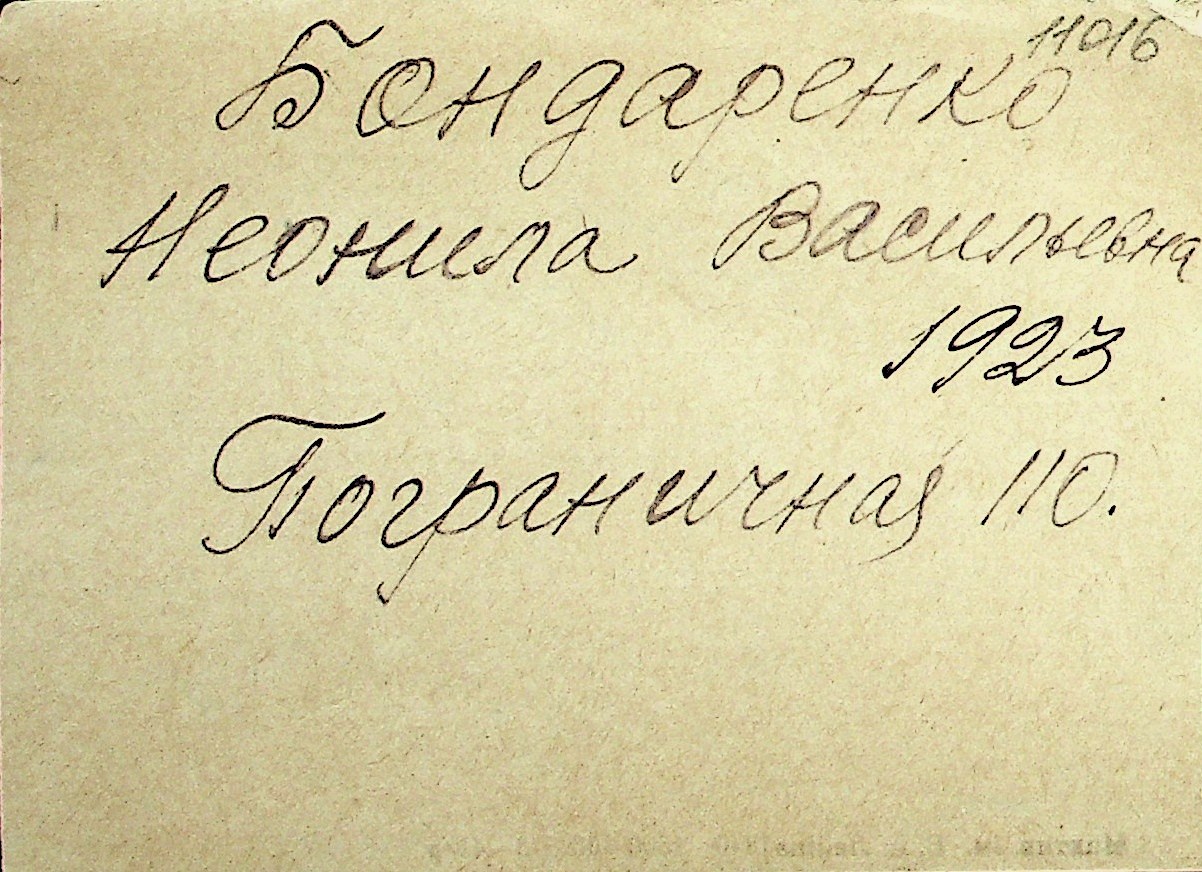 11016
Бондаренко
Неонила Васильевна
1923
Пограничная 110.